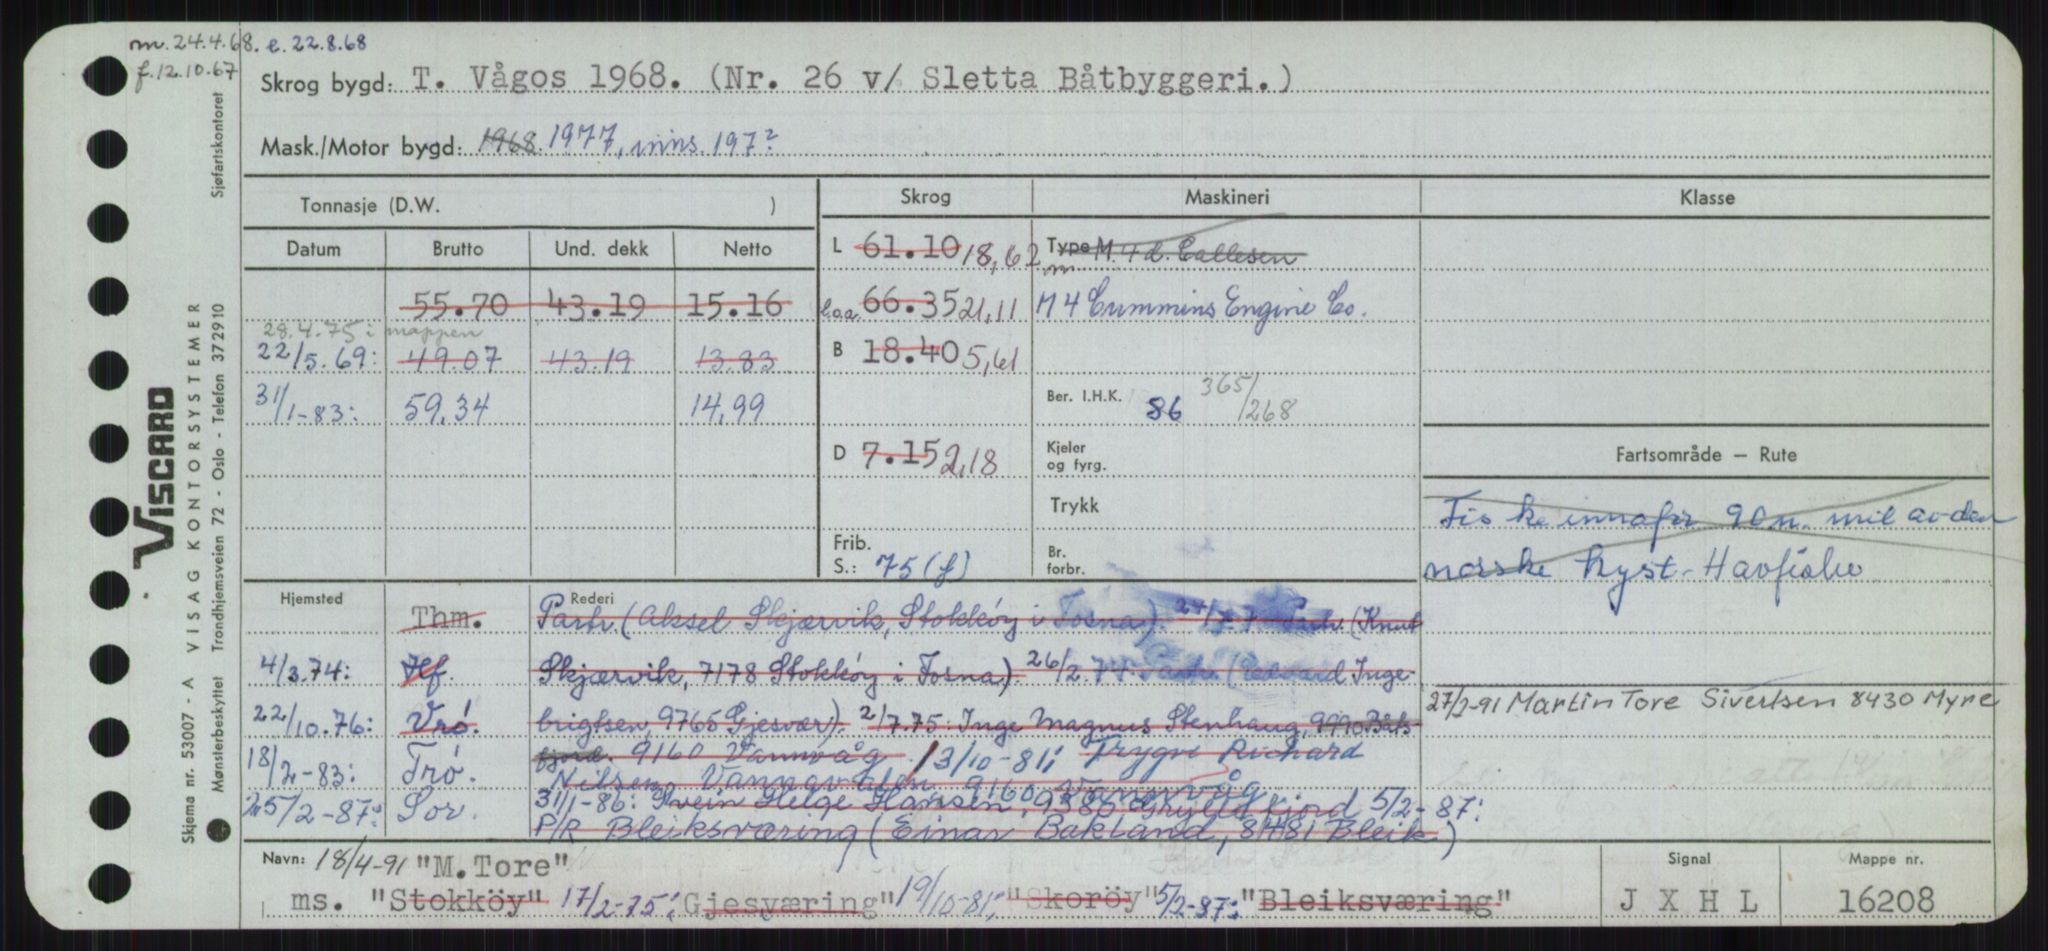 m. 24.4.68. e. 22.8.68
f. 12.10.67
Skrog bygd: T. Vågos 1968. (Nr. 26 v/ Sletta Båtbyggeri.)
Mask./Motor bygd: 1968 1977, inns. 197?
Tonnasje (D.W. )
Skrog Maskineri Klasse
Datum Brutto Und. dekk Netto
L 61.10 18,62 Type M. 4 d. Callesen
m
55.70 43.19 15.16
l.o.a. 66.35 21,11 M 4 Cummins Engine Co.
28.4.75 i mappen
22/5.69: 49.07 43.19 13.83
B 18.40 5,61
31/1-83: 59,34 14,99
Ber. I.H.K. 86 365/268
D 7.15 2,18
Kjeler og fyrg.
Trykk
Frib.
S.: 75 (f)
Br. forbr.
Fartsområde — Rute
Fiske innafor 90 n. mil av den
norske kyst. Havfiske
Hjemsted Rederi
Thm. Partr. (Aksel Skjærvik, Stokköy i Fosna) Partr. (Knut
4/3.74: Hf. Skjærvik, 7178 Stokköy i Fosna) 26/2.74 Partr. (Edvard Inge-
22/10.76: Vrö. brigtsen, 9765 Gjesvær). 2/7.75. Inge Magnus Stenhaug, 9990 Båts-
fjord. 9160 Vannvåg 13/10-81: Trygve Richard
18/2-83: Trö. Nilsen, Vannavalen, 9160 Vannvåg
31/1-86: Svein Helge Hansen, 9380 Gryllefjord 5/2-87:
25/2-87: Sor. P/R Bleiksværing (Einar Bakland, 8481 Bleik.)
27/2-91 Martin Tore Sivertsen 8430 Myre
Navn: 18/4-91 "M.Tore"
ms. "Stokköy" 17/2-75: Gjesværing" 19/10-81: "Skoröy" 5/2-87: "Bleiksværing"
Signal
J X H L
Mappe nr.
16208
VISCARD
VISAG KONTORSYSTEMER
Skjema nr. 53007 - A
Mønsterbeskyttet Trondhjemsveien 72 - Oslo - Telefon 372910 Sjøfartskontoret